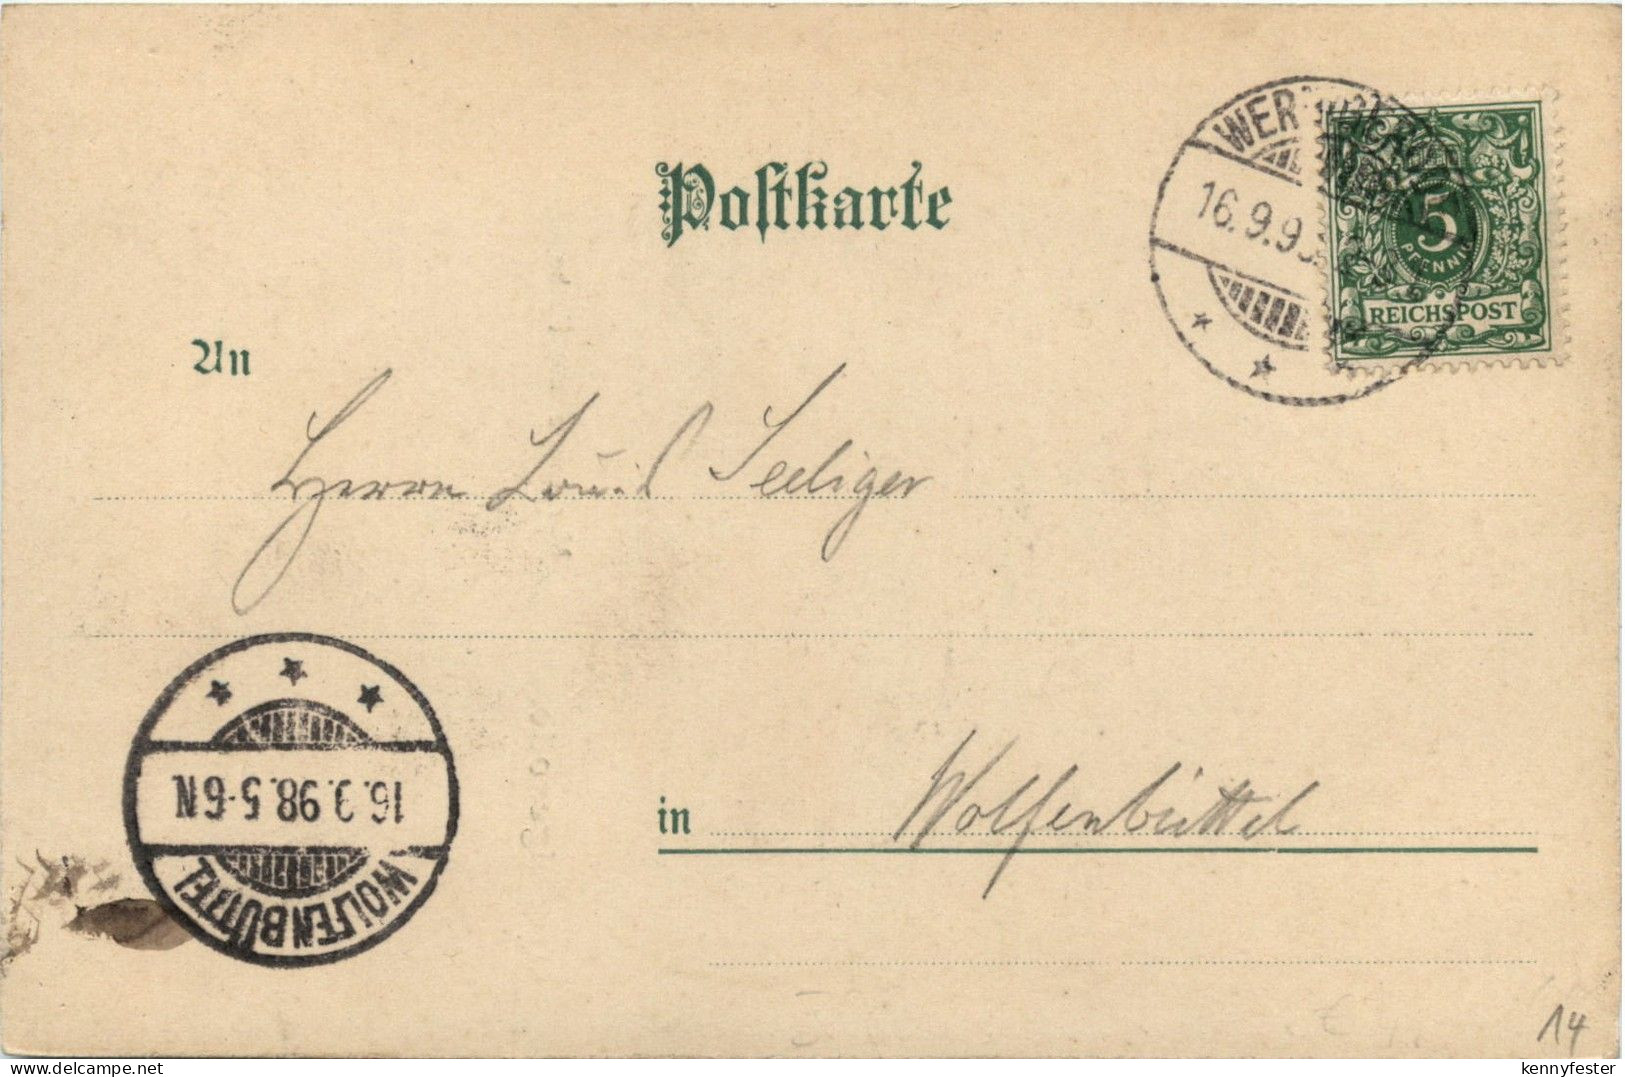 Postkarte
16.9.9
5
PFENNIG
REICHSPOST
An
Herrn Louis Seeliger
16.9.98.5-6N
WOLFENBÜTTEL
in Wolfenbüttel
14
www.delcampe.net
kennyfester